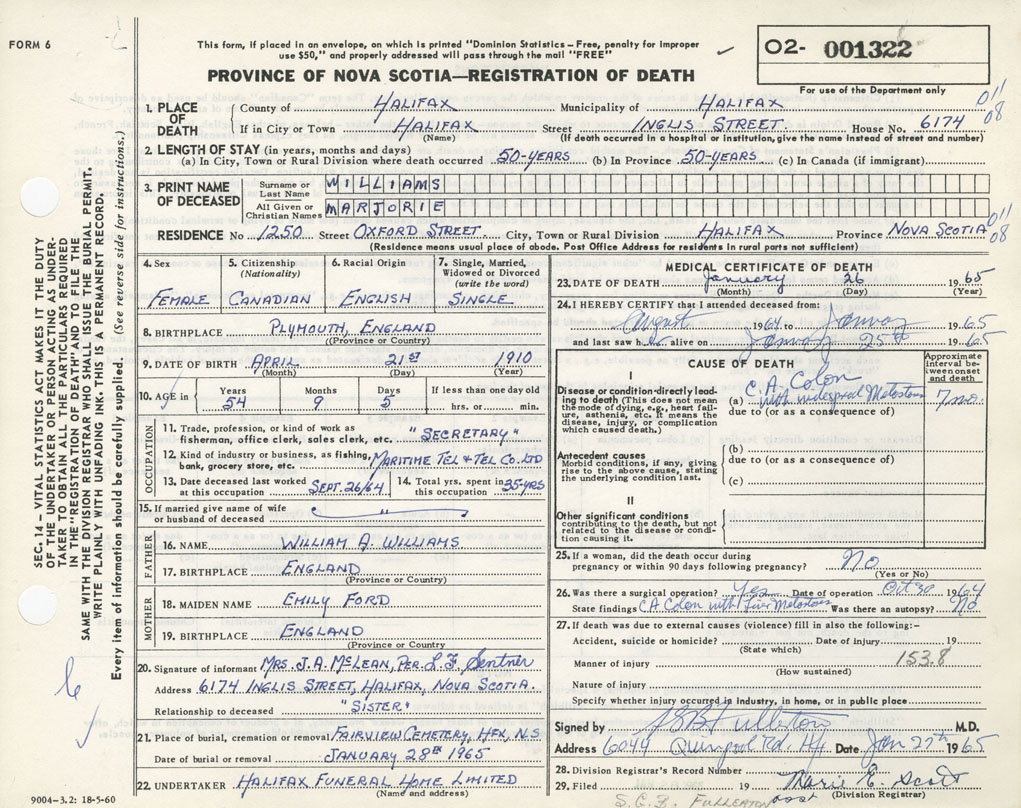 FORM 6
This form, if placed in an envelope, on which is printed "Dominion Statistics – Free, penalty for improper
use $50," and properly addressed will pass through the mail "FREE"
PROVINCE OF NOVA SCOTIA—REGISTRATION OF DEATH
O2- 001322
For use of the Department only
1. PLACE OF DEATH
County of HALIFAX Municipality of HALIFAX
011
08
If in City or Town HALIFAX Street INGLIS STREET House No. 6174
(Name) (If death occurred in a hospital or institution, give the name instead of street and number)
2. LENGTH OF STAY (in years, months and days)
(a) In City, Town or Rural Division where death occurred 50-YEARS (b) In Province 50-YEARS (c) In Canada (if immigrant)
3. PRINT NAME OF DECEASED
Surname or Last Name WILLIAMS
All Given or Christian Names MARJORIE
RESIDENCE No 1250 Street OXFORD STREET City, Town or Rural Division HALIFAX Province NOVA SCOTIA
011
08
(Residence means usual place of abode. Post Office Address for residents in rural parts not sufficient)
4. Sex
FEMALE
5. Citizenship (Nationality)
CANADIAN
6. Racial Origin
ENGLISH
7. Single, Married, Widowed or Divorced (write the word)
SINGLE
8. BIRTHPLACE PLYMOUTH, ENGLAND
(Province or Country)
9. DATE OF BIRTH APRIL 21st 1910
(Month) (Day) (Year)
10. AGE in Years Months Days If less than one day old
54 9 5 hrs. or min.
OCCUPATION
11. Trade, profession, or kind of work as
fisherman, office clerk, sales clerk, etc. "SECRETARY"
12. Kind of industry or business, as fishing,
bank, grocery store, etc. MARITIME TEL & TEL CO. LTD
13. Date deceased last worked
at this occupation SEPT. 26/64
14. Total yrs. spent in
this occupation 35-YRS
15. If married give name of wife
or husband of deceased "
FATHER
16. NAME WILLIAM A. WILLIAMS
17. BIRTHPLACE ENGLAND
(Province or Country)
MOTHER
18. MAIDEN NAME EMILY FORD
19. BIRTHPLACE ENGLAND
(Province or Country
20. Signature of informant MRS. J. A. McLEAN, PER
Address 6174 INGLIS STREET, HALIFAX, NOVA SCOTIA.
Relationship to deceased "SISTER"
21. Place of burial, cremation or removal FAIRVIEW CEMETERY, HFX, N.S
Date of burial or removal JANUARY 28th 1965
22. UNDERTAKER HALIFAX FUNERAL HOME LIMITED
(Name and address)
9004–3.2: 18-5-60
MEDICAL CERTIFICATE OF DEATH
23. DATE OF DEATH January 26 1965
(Month) (Day) (Year)
24. I HEREBY CERTIFY that I attended deceased from:
August 1964 to January 1965
and last saw her alive on January 25th 1965
CAUSE OF DEATH
Approximate interval between onset and death
I
Disease or condition directly lead-
ing to death (This does not mean
the mode of dying, e.g., heart fail-
ure, asthenia, etc. It means the
disease, injury, or complication
which caused death.)
CA Colon
(a) with widespread Metastases 7 mo.
due to (or as a consequence of)
Antecedent causes
Morbid conditions, if any, giving
rise to the above cause, stating
the underlying condition last.
(b)
due to (or as a consequence of)
(c)
II
Other significant conditions
contributing to the death, but not
related to the disease or condi-
tion causing it.
25. If a woman, did the death occur during
pregnancy or within 90 days following pregnancy? No
(Yes or No)
26. Was there a surgical operation? Yes Date of operation Oct 30 1964
State findings CA Colon with Liver Metastases Was there an autopsy? No
27. If death was due to external causes (violence) fill in also the following:–
Accident, suicide or homicide? Date of injury 19
(State which)
153.8
Manner of injury
(How sustained)
Nature of injury
Specify whether injury occurred in industry, in home, or in public place
Signed by S B Fullerton M.D.
Address 6044 Quinpool Rd. Hfx Date Jan 27th 1965
28. Division Registrar's Record Number
29. Filed 19 Marie E. Scott
(Division Registrar)
S.C.F. FULLERTON
SEC. 14 – VITAL STATISTICS ACT MAKES IT THE DUTY
OF THE UNDERTAKER OR PERSON ACTING AS UNDER-
TAKER TO OBTAIN ALL THE PARTICULARS REQUIRED
IN THE "REGISTRATION OF DEATH" AND TO FILE THE
SAME WITH THE DIVISION REGISTRAR WHO SHALL ISSUE THE BURIAL PERMIT.
WRITE PLAINLY WITH UNFADING INK. THIS IS A PERMANENT RECORD.
Every item of information should be carefully supplied. (See reverse side for instructions.)